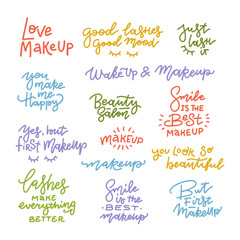 Love
Makeup
Good lashes
Good mood
Just
lash
it
you
make
me
Happy
WakeUp & Makeup
Beauty
Salon
Smile
IS THE
BEST
MAKEUP
Yes, but
first MakeUp
MAKEUP
makeup
you look so
beautiful
Lashes
MAKE
everything
BETTER
Smile
is the
BEST
makeup
But
First
Makeup